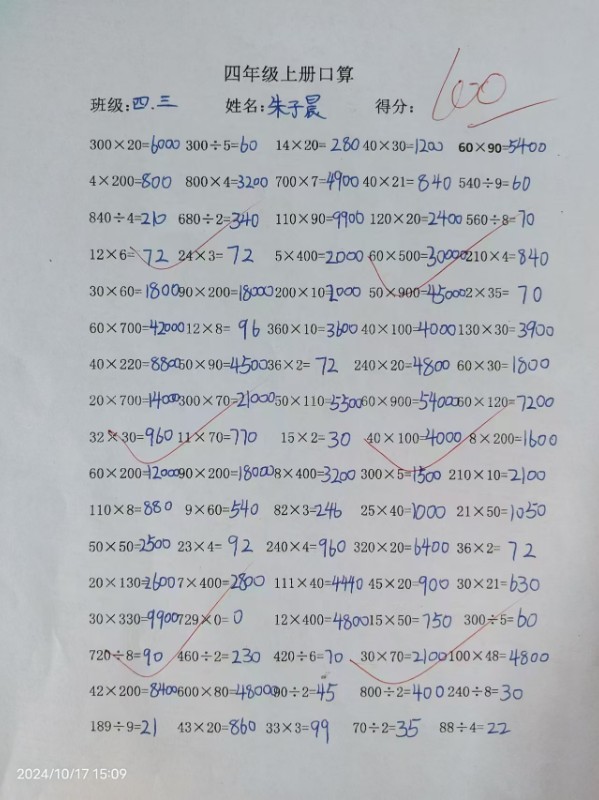 四年级上册口算
班级:四.三 姓名:朱子晨 得分: 100
300×20=6000 300÷5=60 14×20=280 40×30=1200 60×90=5400
4×200=800 800×4=3200 700×7=4900 40×21=840 540÷9=60
840÷4=210 680÷2=340 110×90=9900 120×20=2400 560÷8=70
12×6=72 24×3=72 5×400=2000 60×500=30000 210×4=840
30×60=1800 90×200=18000 200×10=2000 50×900=45000 2×35=70
60×700=42000 12×8=96 360×10=3600 40×100=4000 130×30=3900
40×220=8800 50×90=4500 36×2=72 240×20=4800 60×30=1800
20×700=14000 300×70=21000 50×110=5500 60×900=54000 60×120=7200
32×30=960 11×70=770 15×2=30 40×100=4000 8×200=1600
60×200=12000 90×200=18000 8×400=3200 300×5=1500 210×10=2100
110×8=880 9×60=540 82×3=246 25×40=1000 21×50=1050
50×50=2500 23×4=92 240×4=960 320×20=6400 36×2=72
20×130=2600 7×400=2800 111×40=4440 45×20=900 30×21=630
30×330=9900 729×0=0 12×400=4800 15×50=750 300÷5=60
720÷8=90 460÷2=230 420÷6=70 30×70=2100 100×48=4800
42×200=8400 600×80=48000 90÷2=45 800÷2=400 240÷8=30
189÷9=21 43×20=860 33×3=99 70÷2=35 88÷4=22
2024/10/17 15:09